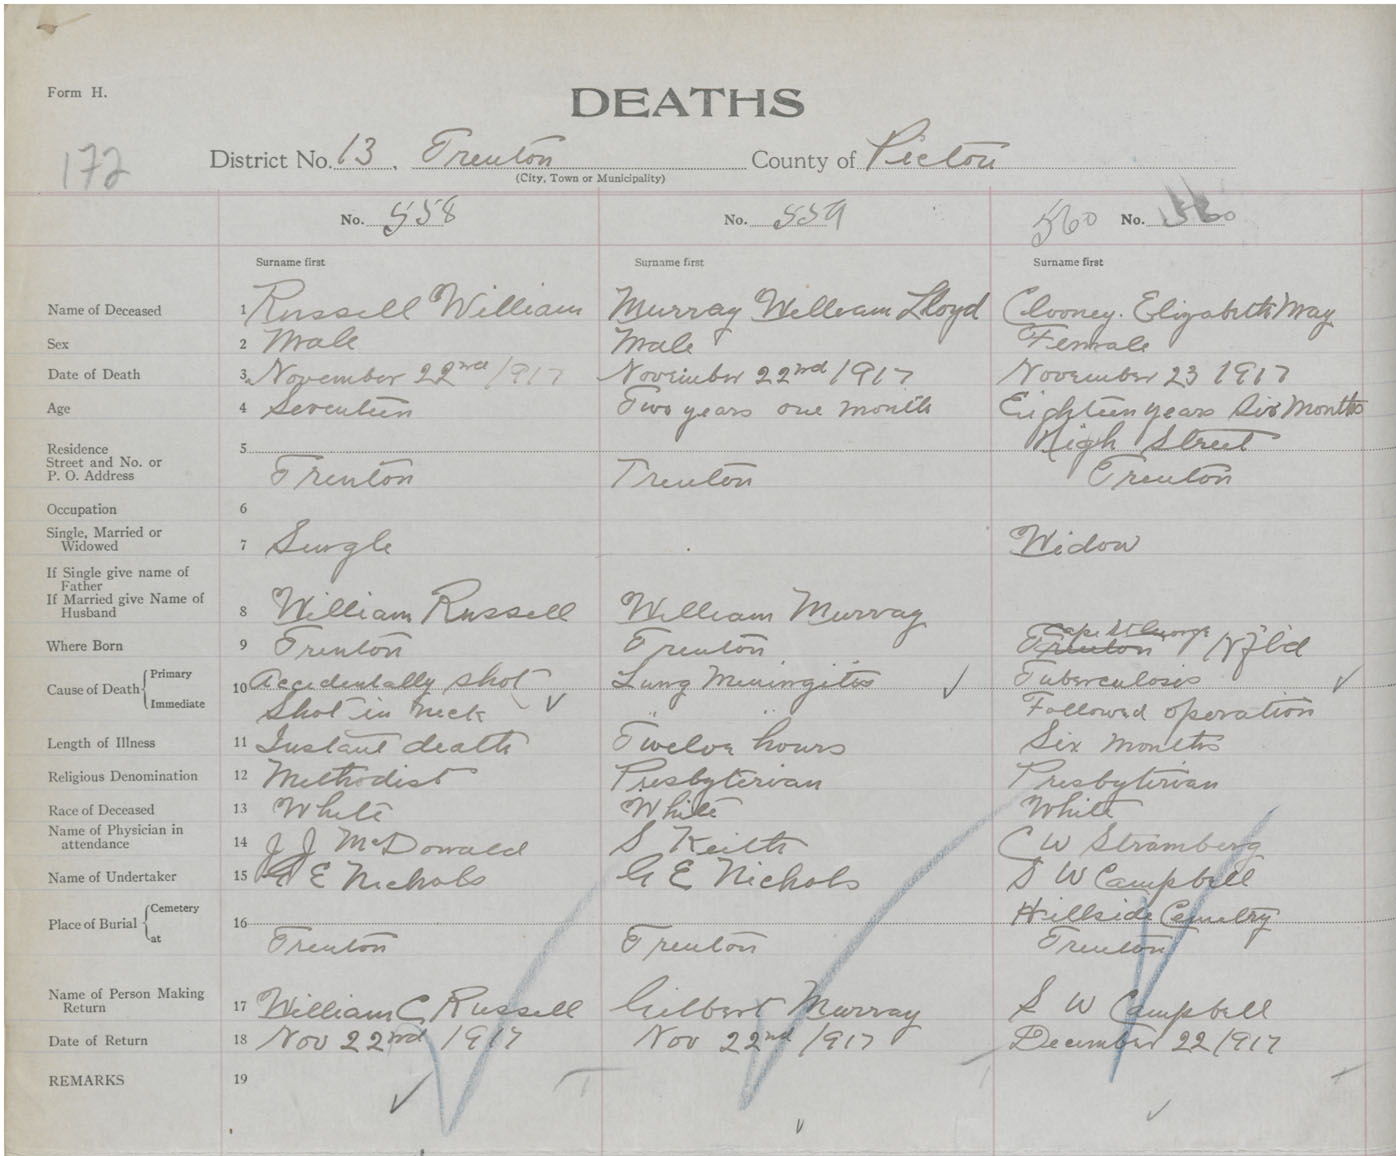 Form H.
DEATHS
172
District No. 13, Trenton County of Pictou
(City, Town or Municipality)
No. 558 No. 559 560 No. 560
Surname first Surname first Surname first
Name of Deceased 1 Russell William Murray William Lloyd Clooney. Elizabeth May
Sex 2 Male Male Female
Date of Death 3 November 22nd/1917 November 22nd/1917 November 23 1917
Age 4 Seventeen Two years one month Eighteen years Six Months
Residence 5 High Street
Street and No. or
P. O. Address Trenton Trenton Trenton
Occupation 6
Single, Married or
Widowed 7 Single Widow
If Single give name of
Father
If Married give Name of
Husband 8 William Russell William Murray
Cape St George
Where Born 9 Trenton Trenton Trenton Nfld
Cause of Death Primary 10 Accidentally shot Lung Miningitis Tuberculosis
Immediate Shot in neck Followed operation
Length of Illness 11 Instant death Twelve hours Six Months
Religious Denomination 12 Methodist Presbyterian Presbyterian
Race of Deceased 13 White White White
Name of Physician in
attendance 14 J J McDonald S Keith C W Stramberg
Name of Undertaker 15 G E Nichols G E Nichols S W Campbell
Place of Burial Cemetery 16 Hillside Cemetry
at Trenton Trenton Trenton
Name of Person Making
Return 17 William C Russell Gilbert Murray S W Campbell
Date of Return 18 Nov 22nd/1917 Nov 22nd/1917 December 22/1917
REMARKS 19